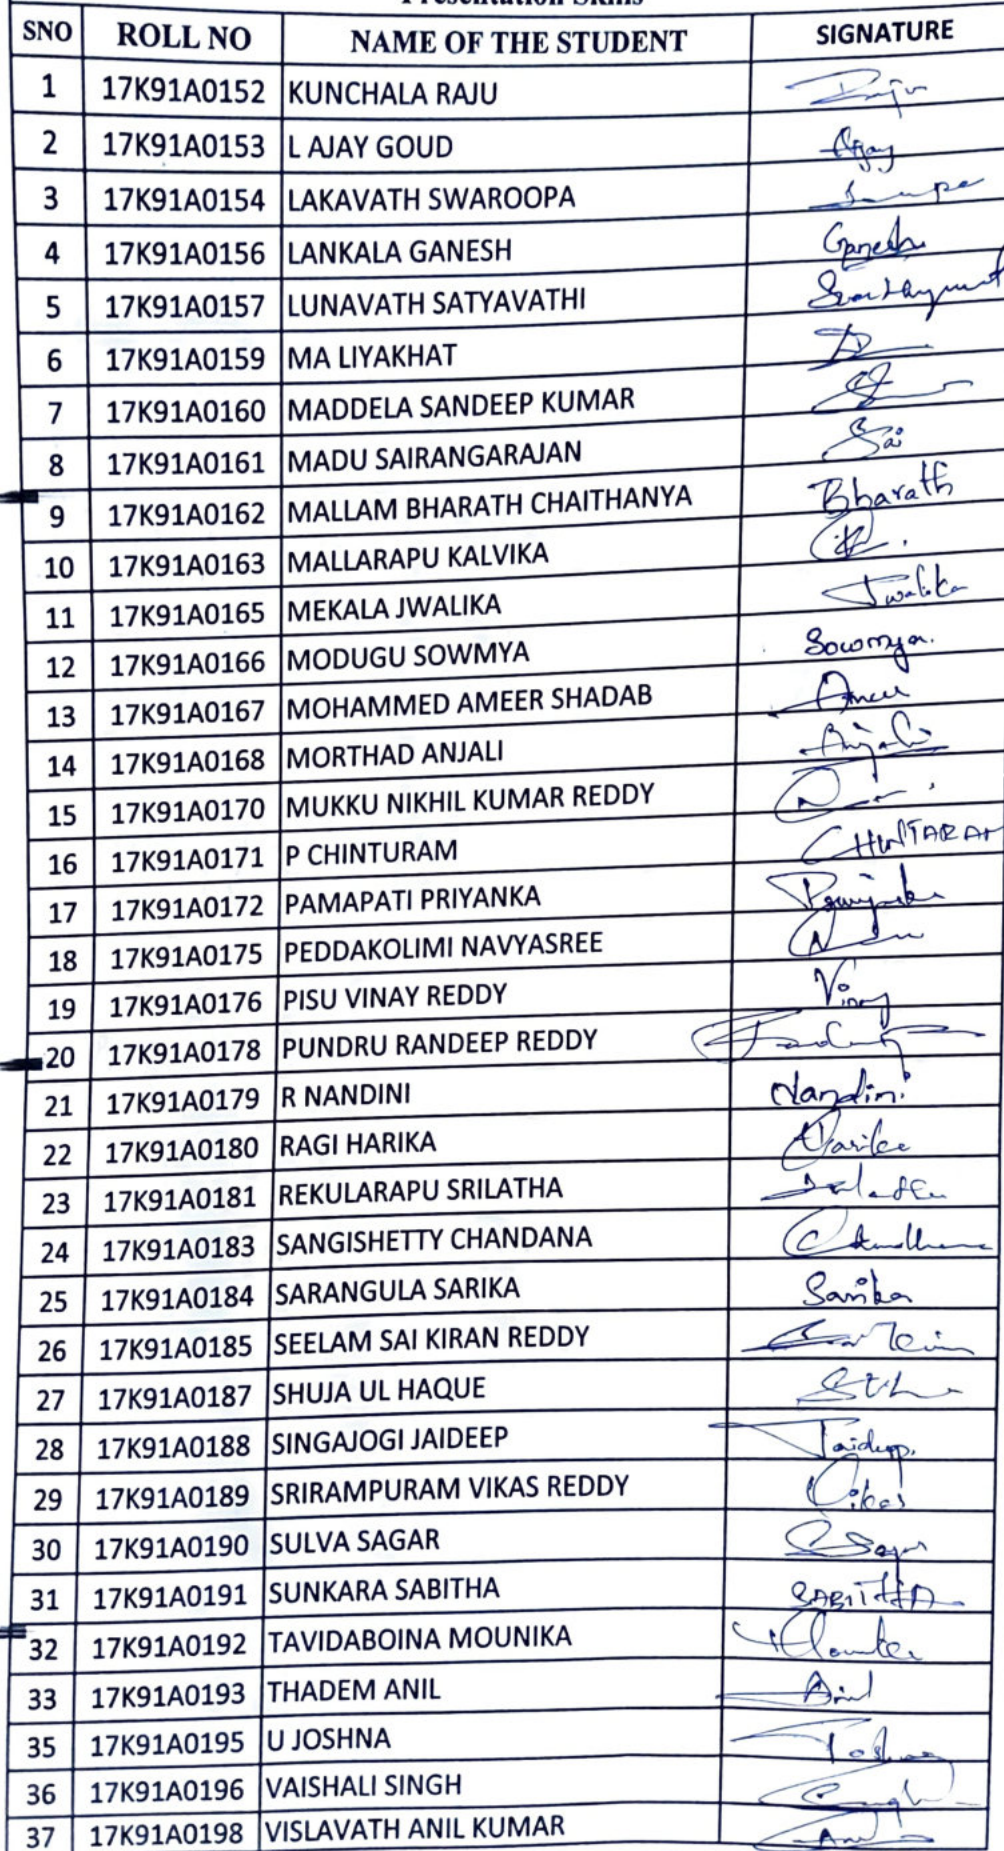 Presentation Skills
SNO ROLL NO NAME OF THE STUDENT SIGNATURE
1 17K91A0152 KUNCHALA RAJU Raju
2 17K91A0153 L AJAY GOUD Ajay
3 17K91A0154 LAKAVATH SWAROOPA
4 17K91A0156 LANKALA GANESH Ganesh
5 17K91A0157 LUNAVATH SATYAVATHI
6 17K91A0159 MA LIYAKHAT
7 17K91A0160 MADDELA SANDEEP KUMAR
8 17K91A0161 MADU SAIRANGARAJAN Sai
9 17K91A0162 MALLAM BHARATH CHAITHANYA Bharath
10 17K91A0163 MALLARAPU KALVIKA
11 17K91A0165 MEKALA JWALIKA Jwalika
12 17K91A0166 MODUGU SOWMYA Sowmya.
13 17K91A0167 MOHAMMED AMEER SHADAB Ameer
14 17K91A0168 MORTHAD ANJALI Anjali
15 17K91A0170 MUKKU NIKHIL KUMAR REDDY
16 17K91A0171 P CHINTURAM
17 17K91A0172 PAMAPATI PRIYANKA
18 17K91A0175 PEDDAKOLIMI NAVYASREE
19 17K91A0176 PISU VINAY REDDY Vinay
20 17K91A0178 PUNDRU RANDEEP REDDY
21 17K91A0179 R NANDINI Nandini
22 17K91A0180 RAGI HARIKA Harika
23 17K91A0181 REKULARAPU SRILATHA
24 17K91A0183 SANGISHETTY CHANDANA
25 17K91A0184 SARANGULA SARIKA Sarika
26 17K91A0185 SEELAM SAI KIRAN REDDY
27 17K91A0187 SHUJA UL HAQUE
28 17K91A0188 SINGAJOGI JAIDEEP Jaideep.
29 17K91A0189 SRIRAMPURAM VIKAS REDDY Vikas
30 17K91A0190 SULVA SAGAR Sagar
31 17K91A0191 SUNKARA SABITHA SABITHA
32 17K91A0192 TAVIDABOINA MOUNIKA
33 17K91A0193 THADEM ANIL Anil
35 17K91A0195 U JOSHNA
36 17K91A0196 VAISHALI SINGH
37 17K91A0198 VISLAVATH ANIL KUMAR